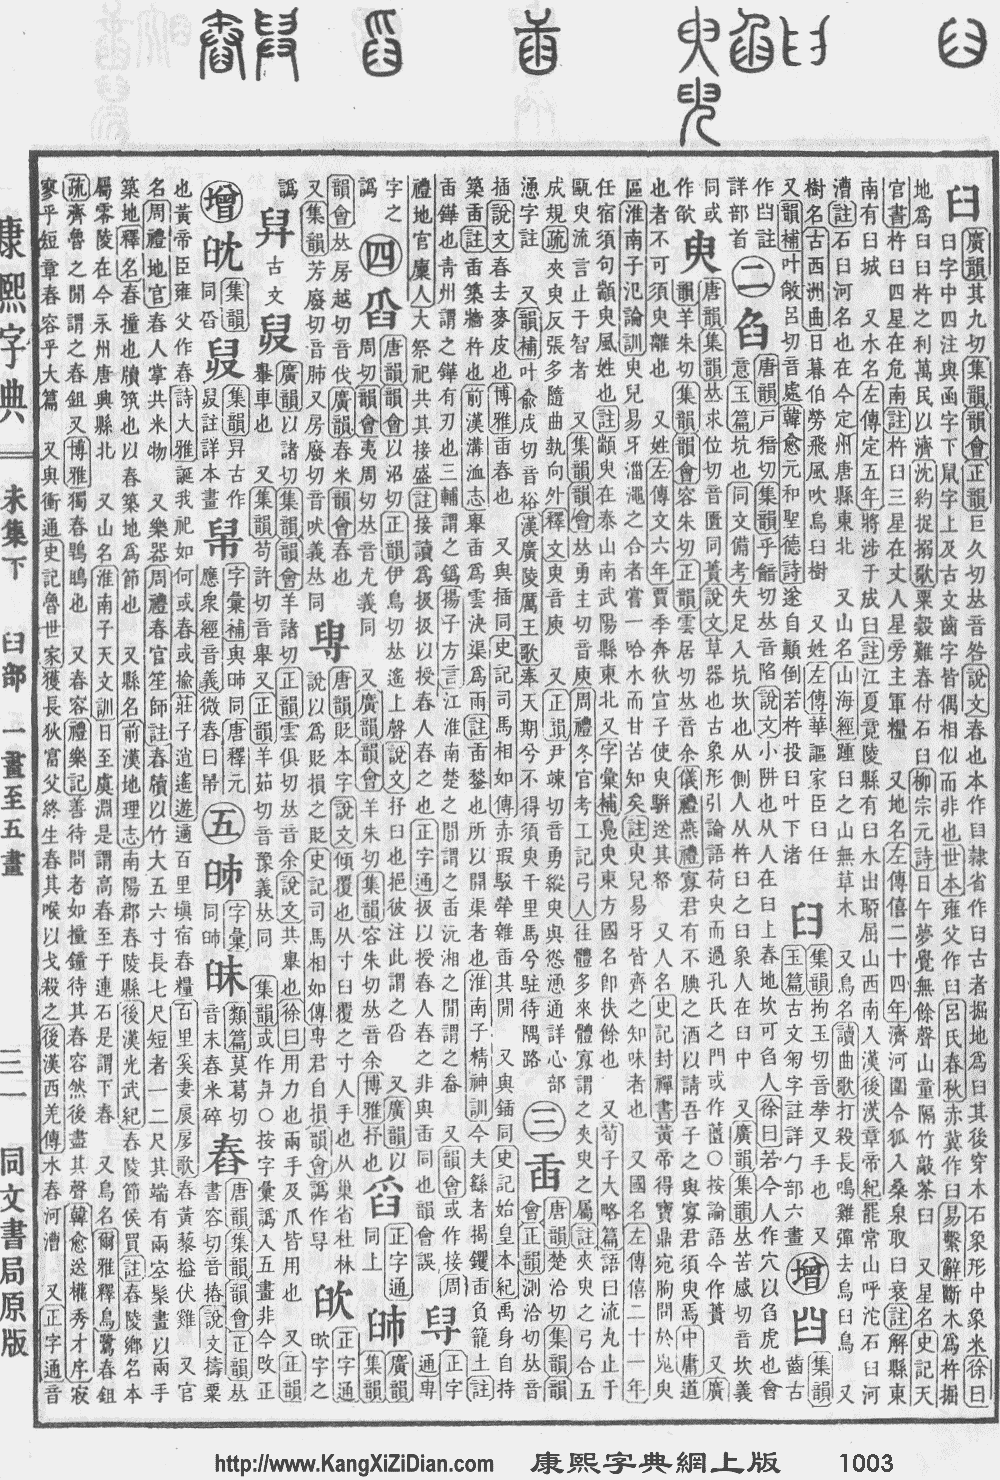 臼 廣韻其九切集韻韻會正韻巨久切𠀤音咎說文舂也本作臼隸省作臼古者掘地爲臼其後穿木石象形中象米徐曰
臼字中四注與函字下鼠字上及古文齒字皆偶相似而非也世本雍父作臼呂氏春秋赤冀作臼易繫辭斷木爲杵掘
地爲臼臼杵之利萬民以濟沈約捉搦歌粟穀難舂付石臼柳宗元詩日午夢覺無餘聲山童隔竹敲茶臼 又星名史記天
官書杵臼四星在危南註杵臼三星在丈人星旁主軍糧 又地名左傳僖二十四年濟河圍令狐入桑泉取臼衰註解縣東
南有臼城 又水名左傳定五年將涉于成臼註江夏竟陵縣有臼水出聊屈山西南入漢後漢章帝紀罷常山呼沱石臼河
漕註石臼河名也在今定州唐縣東北 又山名山海經踵臼之山無草木 又鳥名讀曲歌打殺長鳴雞彈去烏臼鳥 又
樹名古西洲曲日暮伯勞飛風吹烏臼樹 又姓左傳華貙家臣臼任 𦥑 集韻拘玉切音𢫶叉手也 又 增 集韻
又韻補叶敞呂切音處韓愈元和聖德詩遂自顛倒若杵投臼叶下渚 玉篇古文匊字註詳勹部六畫 齒古
作註 二 臽 唐韻戶㺂切集韻乎韽切𠀤音陷說文小阱也从人在臼上舂地坎可臽人徐曰若今人作穴以臽虎也會
詳部首 意玉篇坑也同文備考失足入坑坎也从側人从杵臼之臼象人在臼中 又廣韻集韻𠀤苦感切音坎義
同或 臾 唐韻集韻𠀤求位切音匱同蕢說文草器也古象形引論語荷臾而過孔氏之門或作𠥎○按論語今作蕢 又廣
作欿 韻羊朱切集韻韻會容朱切正韻雲居切𠀤音余儀禮燕禮寡君有不腆之酒以請吾子之與寡君須臾焉中庸道
也者不可須臾離也 又姓左傳文六年賈季奔狄宣子使臾騈送其帑 又人名史記封禪書黃帝得寶鼎宛朐問於鬼臾
區淮南子氾論訓臾兒易牙淄澠之合者嘗一哈水而甘苦知矣註臾兒易牙皆齊之知味者也 又國名左傳僖二十一年
任宿須句顓臾風姓也註顓臾在泰山南武陽縣東北又字彙補臾東方國名卽扶餘也 又荀子大略篇語曰流丸止于
甌臾流言止于智者 又集韻韻會𠀤勇主切音庾周禮冬官考工記弓人往體多來體寡謂之夾臾之屬註夾臾之弓合五
成規疏夾臾反張多隨曲執向外釋文臾音庾 又正韻尹竦切音勇縱臾與慫慂通詳心部 三 臿 唐韻楚洽切集韻韻
慂字註 又韻補叶兪戍切音裕漢廣陵厲王歌奉天期兮不得須臾千里馬兮駐待隅路 會正韻測洽切𠀤音
插說文舂去麥皮也博雅臿舂也 又與插同史記司馬相如傳赤瑕駁犖雜臿其閒 又與鍤同史記始皇本紀禹身自持
築臿註臿築牆杵也前漢溝洫志舉臿爲雲決渠爲雨註臿鍫也所以開渠者也淮南子精神訓今夫繇者揭钁臿負籠土註
臿鏵也靑州謂之鏵有刃也三輔謂之鍋揚子方言江淮南楚之閒謂之臿沅湘之閒謂之畚 又韻會或作接周
禮地官廩人大祭祀共其接盛註接讀爲扱扱以授舂人舂之也正字通扱以授舂人舂之非與臿同也韻會誤
字之 四 舀 唐韻韻會以沼切正韻伊鳥切𠀤遙上聲說文抒臼也挹彼注此謂之舀 又廣韻以 正字通 正字
譌 周切韻會夷周切𠀤音尤義同 又廣韻韻會羊朱切集韻容朱切𠀤音余博雅抒也 同上 通專
韻會𠀤房越切音伐廣韻舂米韻會舂也 唐韻貶本字說文傾覆也从寸臼覆之寸人手也从巢省杜林 廣韻
又集韻芳廢切音肺又房廢切音吠義𠀤同 說以爲貶損之貶史記司馬相如傳專君自損韻會譌作 集韻
譌 舁 古文 廣韻以諸切集韻韻會羊諸切正韻雲俱切𠀤音余說文共舉也徐曰用力也兩手及爪皆用也 又正韻 正字通
舉車也 又集韻苟許切音舉又正韻羊茹切音豫義𠀤同 集韻或作○按字彙譌入五畫非今改正 字之
增 集韻 集韻舁古作 字彙補與同唐釋元 五 字彙 類篇莫葛切 舂 唐韻集韻韻會正韻𠀤
同舀 註詳本畫 應衆經音義微舂曰 同 音末舂米碎 書容切音摏說文擣粟
也黃帝臣雍父作舂詩大雅誕我祀如何或舂或揄莊子逍遙遊適百里塡宿舂糧百里奚妻扊扅歌舂黃藜搤伏雞 又官
名周禮地官舂人掌共米物 又樂器周禮春官笙師註舂牘以竹大五六寸長七尺短者一二尺其端有兩空髤畫以兩手
築地釋名舂撞也牘筑也以舂築地爲節也 又縣名前漢地理志南陽郡舂陵縣後漢光武紀舂陵節侯買註舂陵鄕名本
屬零陵在今永州唐興縣北 又山名淮南子天文訓日至虞淵是謂高舂至于連石是謂下舂 又鳥名爾雅釋鳥鷺舂鉏
疏齊魯之閒謂之舂鉏又博雅獨舂鶡鴠也 又舂容禮樂記善待問者如撞鐘待其舂容然後盡其聲韓愈送權秀才序寂
寥乎短章舂容乎大篇 又與衝通史記魯世家獲長狄富父終甥舂其喉以戈殺之後漢西羌傳水舂河漕 又正字通音
康熙字典 未集下 臼部 一畫至五畫 三一 同文書局原版
http://www.KangXiZiDian.com 康熙字典網上版 1003